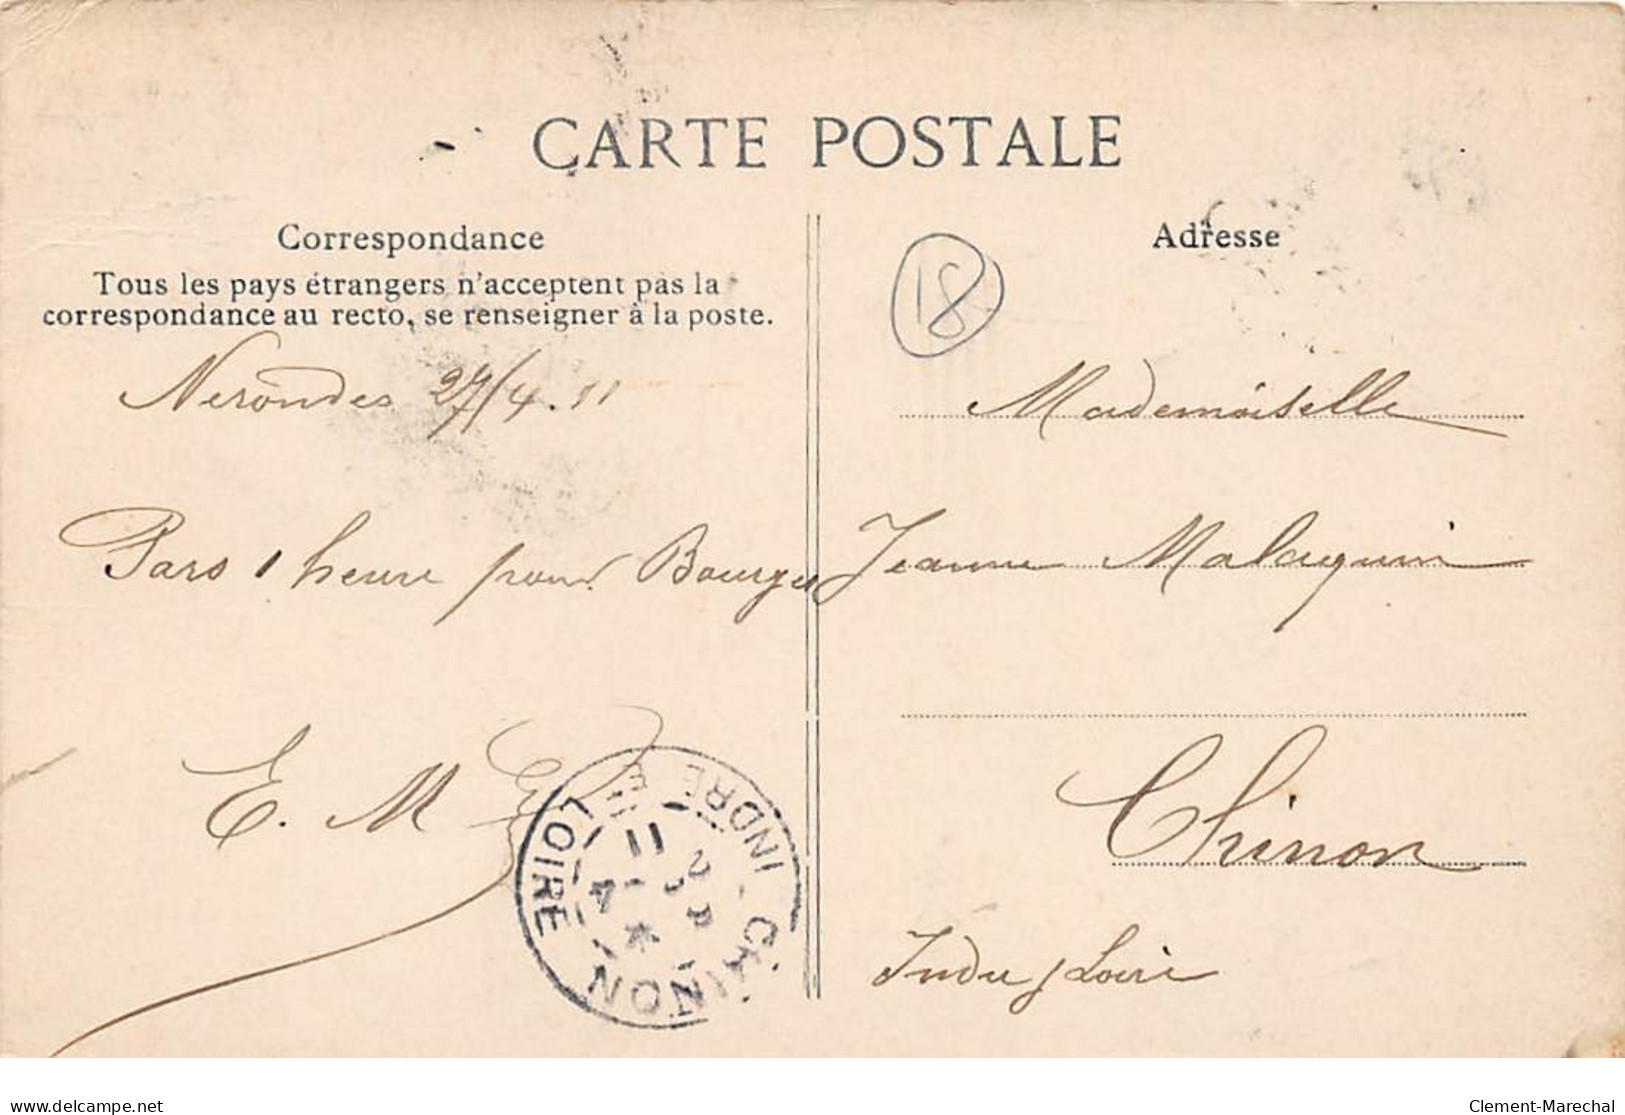 CARTE POSTALE
Correspondance
Tous les pays étrangers n'acceptent pas la
correspondance au recto, se renseigner à la poste.
Nerondes 27/4.11
Pars 1 heure pour Bourges
E. M
Adresse
18
Mademoiselle
Jeanne Malaquin
Chinon
Indre & Loire
CHINON INDRE ET LOIRE
www.delcampe.net
Clement-Marechal